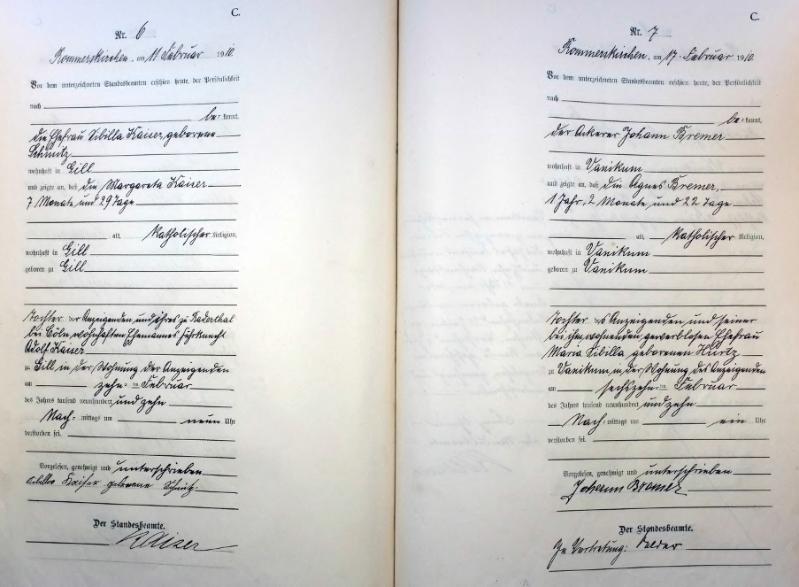 C.
Nr. 6
Rommerskirchen, am 11. Februar 1910
Vor dem unterzeichneten Standesbeamten erschien heute, der Persönlichkeit
nach
be= kannt,
die Ehefrau Sibilla Kaiser, geborene
Schmitz
wohnhaft in Gill
und zeigte an, daß die Margareta Kaiser
7 Monate und 29 Tage
alt, katholischer Religion,
wohnhaft in Gill
geboren zu Gill
Tochter der Anzeigenden und ihres zu Raderthal
bei Cöln wohnhaften Ehemannes
Adolf Kaiser
zu Gill, in der Wohnung der Anzeigenden
am zehn= ten Februar
des Jahres tausend neunhundert und zehn
Nach= mittags um neun Uhr
verstorben sei.
Vorgelesen, genehmigt und unterschrieben
Sibilla Kaiser geborene Schmitz.
Der Standesbeamte.
Kaiser
C.
Nr. 7
Rommerskirchen, am 17. Februar 1910
Vor dem unterzeichneten Standesbeamten erschien heute, der Persönlichkeit
nach
be= kannt,
der Ackerer Johann Bremer
wohnhaft in Vanikum
und zeigte an, daß die Agnes Bremer,
1 Jahr, 2 Monate und 22 Tage
alt, katholischer Religion,
wohnhaft in Vanikum
geboren zu Vanikum
Tochter des Anzeigenden und seiner
bei ihm wohnenden gewerblosen Ehefrau
Maria Sibilla geborenen
zu Vanikum, in der Wohnung des Anzeigenden
am sechszehn= ten Februar
des Jahres tausend neunhundert und zehn
Nach= mittags um ein Uhr
verstorben sei.
Vorgelesen, genehmigt und unterschrieben
Johann Bremer
Der Standesbeamte.
In Vertretung: